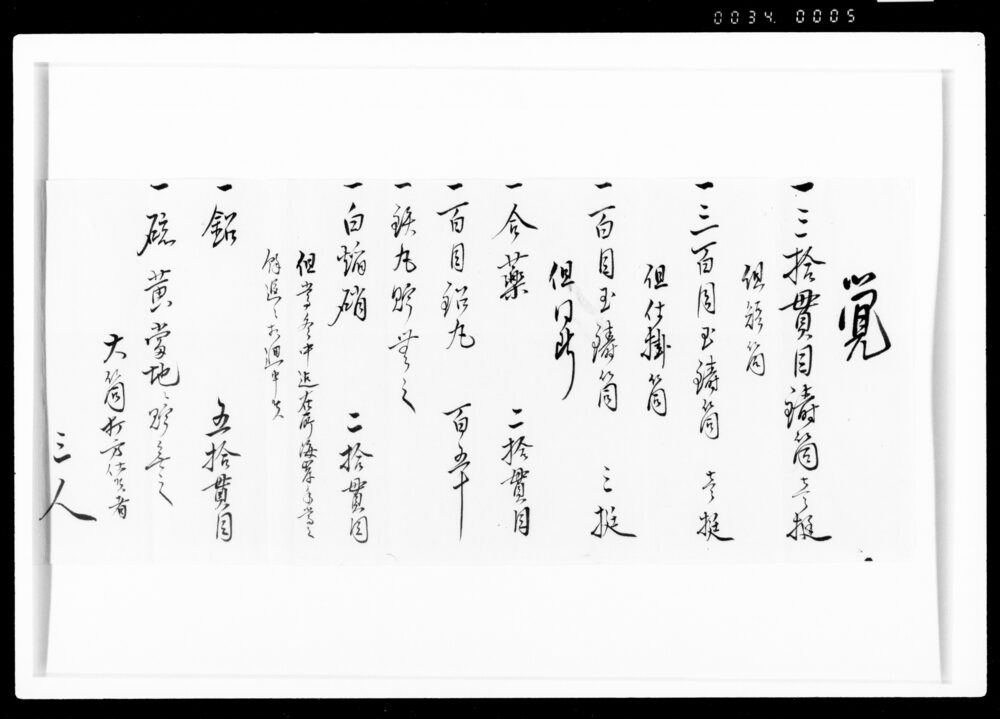 0034 0005
覚
一三拾貫目鋳筒壱挺
但短筒
一三百目玉鋳筒 壱挺
但仕掛筒
一百目玉鋳筒 三挺
但同断
一合薬 二拾貫目
一百目鉛丸 百五十
一鉄丸貯無之
一白焔硝 二拾貫目
但当冬中迄在所海岸手当之
一鉛 五拾貫目
一硫黄当地ニ貯無之
大筒打方仕候者
三人